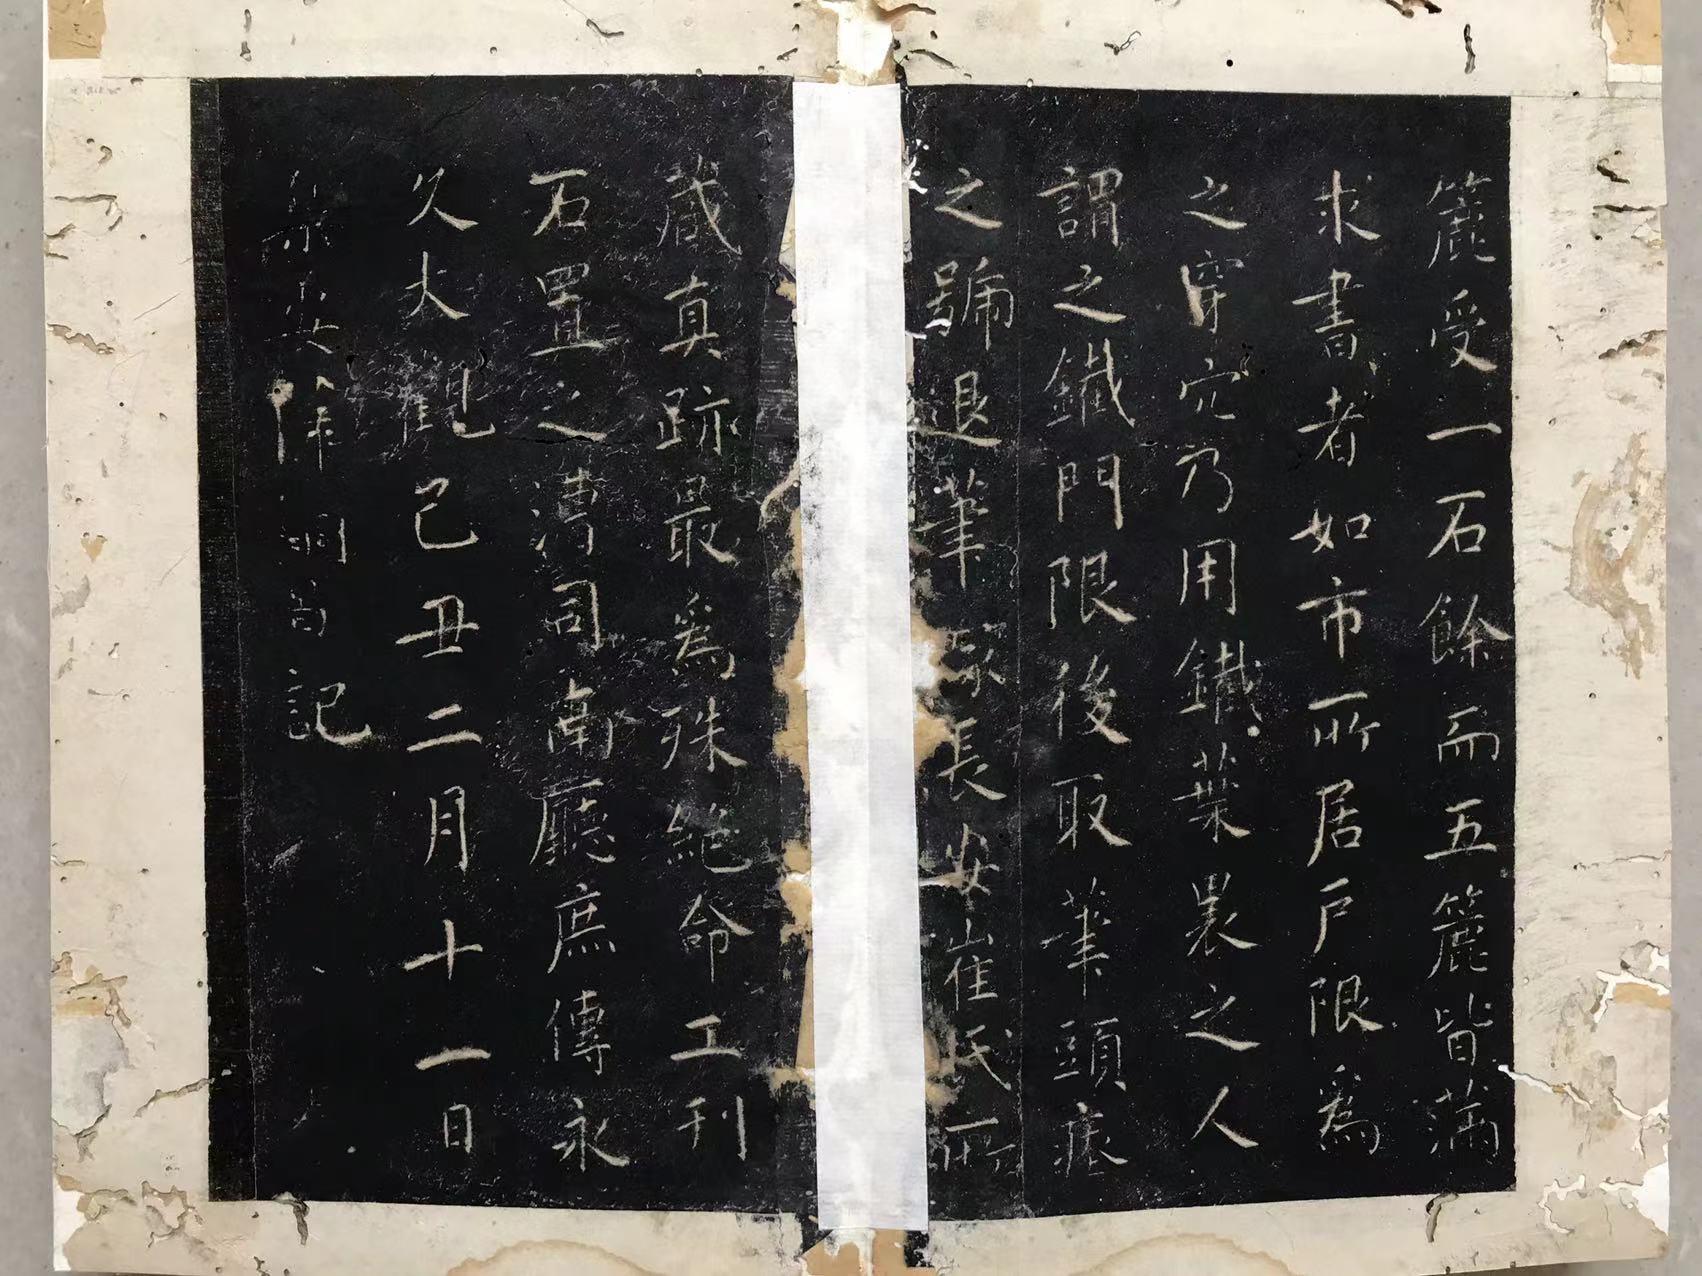 簏受一石餘而五簏皆滿
求書者如市所居戶限爲
之穿穴乃用鐵葉裹之人
謂之鐵門限後取筆頭瘞
之號退筆冢長安崔氏所
藏真跡最爲殊絕命工刊
石置之漕司南廳庶傳永
久大觀己丑二月十一日
樂安薛嗣昌記